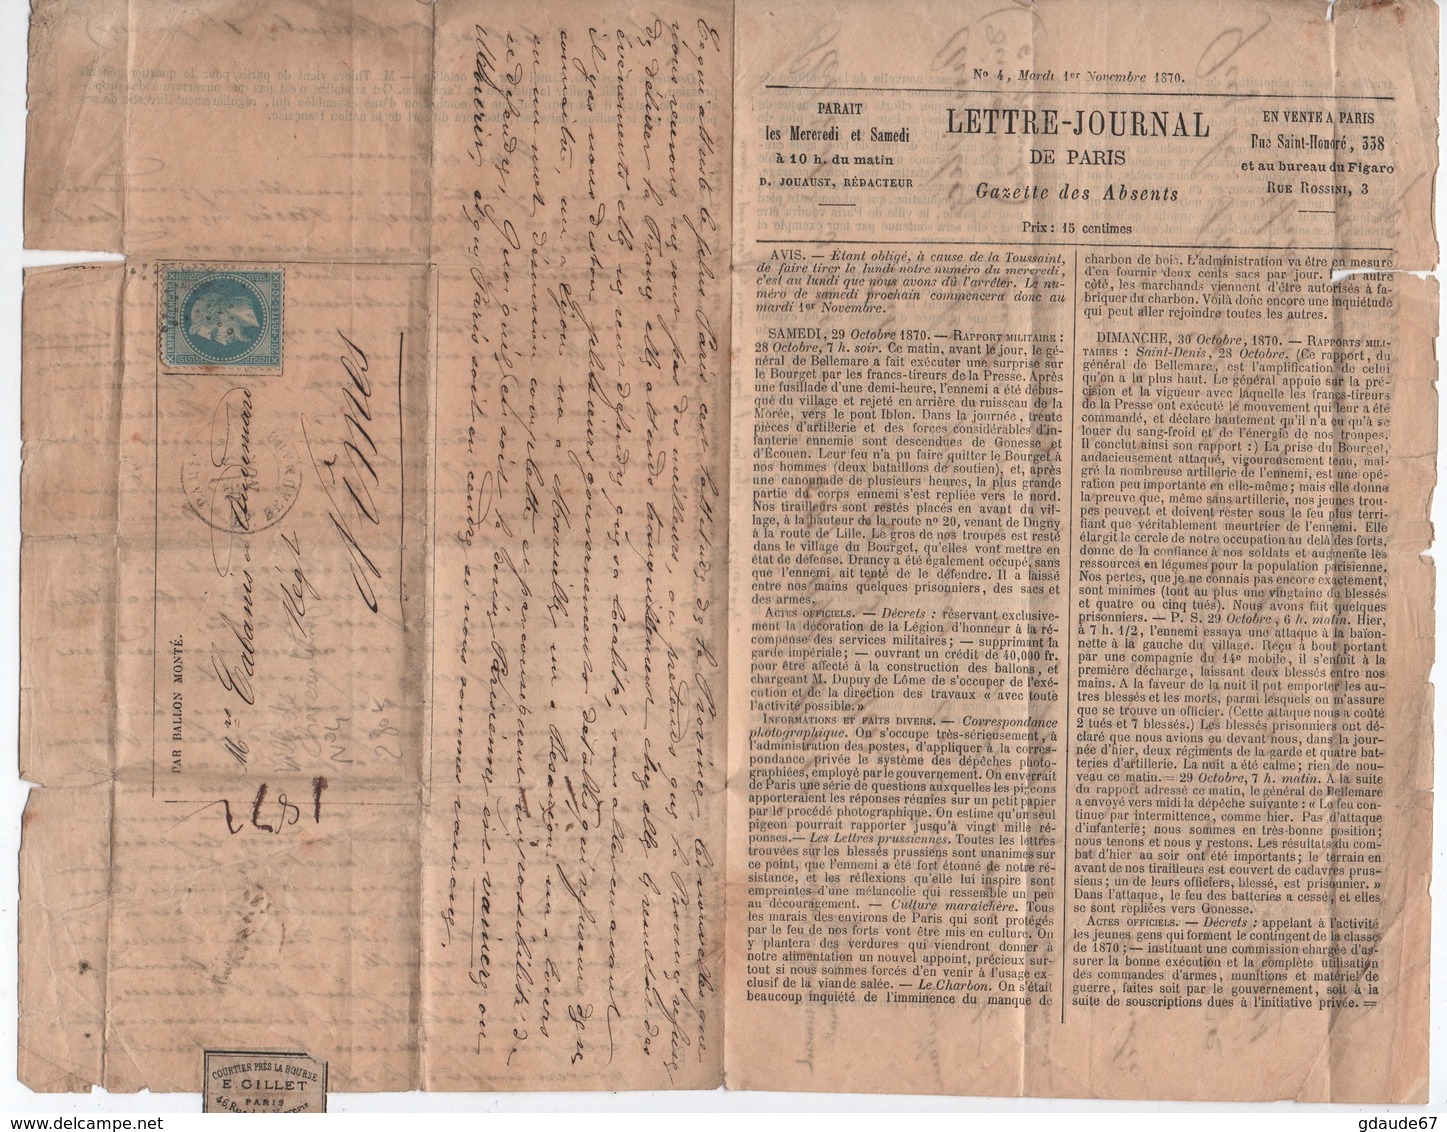 Nº 4, Mardi 1er Novembre 1870.
PARAIT
les Mercredi et Samedi
à 10 h. du matin
D. JOUAUST, RÉDACTEUR
LETTRE-JOURNAL
DE PARIS
Gazette des Absents
Prix : 15 centimes
EN VENTE A PARIS
Rue Saint-Honoré, 338
et au bureau du Figaro
RUE ROSSINI, 3
AVIS. — Étant obligé, à cause de la Toussaint,
de faire tirer le lundi notre numéro du mercredi,
c'est au lundi que nous avons dû l'arrêter. Le nu-
méro de samedi prochain commencera donc au
mardi 1er Novembre.
SAMEDI, 29 Octobre 1870. — RAPPORT MILITAIRE :
28 Octobre, 7 h. soir. Ce matin, avant le jour, le gé-
néral de Bellemare a fait exécuter une surprise sur
le Bourget par les francs-tireurs de la Presse. Après
une fusillade d'une demi-heure, l'ennemi a été débus-
qué du village et rejeté en arrière du ruisseau de la
Morée, vers le pont Iblon. Dans la journée, trente
pièces d'artillerie et des forces considérables d'in-
fanterie ennemie sont descendues de Gonesse et
d'Écouen. Leur feu n'a pu faire quitter le Bourget à
nos hommes (deux bataillons de soutien), et, après
une canonnade de plusieurs heures, la plus grande
partie du corps ennemi s'est repliée vers le nord.
Nos tirailleurs sont restés placés en avant du vil-
lage, à la hauteur de la route nº 20, venant de Dugny
à la route de Lille. Le gros de nos troupes est resté
dans le village du Bourget, qu'elles vont mettre en
état de défense. Drancy a été également occupé, sans
que l'ennemi ait tenté de le défendre. Il a laissé
entre nos mains quelques prisonniers, des sacs et
des armes.
ACTES OFFICIELS. — Décrets : réservant exclusive-
ment la décoration de la Légion d'honneur à la ré-
compense des services militaires; — supprimant la
garde impériale; — ouvrant un crédit de 40,000 fr.
pour être affecté à la construction des ballons, et
chargeant M. Dupuy de Lôme de s'occuper de l'exé-
cution et de la direction des travaux « avec toute
l'activité possible. »
INFORMATIONS ET FAITS DIVERS. — Correspondance
photographique. On s'occupe très-sérieusement, à
l'administration des postes, d'appliquer à la corres-
pondance privée le système des dépêches photo-
graphiées, employé par le gouvernement. On enverrait
de Paris une série de questions auxquelles les pigeons
apporteraient les réponses réunies sur un petit papier
par le procédé photographique. On estime qu'un seul
pigeon pourrait rapporter jusqu'à vingt mille ré-
ponses.— Les Lettres prussiennes. Toutes les lettres
trouvées sur les blessés prussiens sont unanimes sur
ce point, que l'ennemi a été fort étonné de notre ré-
sistance, et les réflexions qu'elle lui inspire sont
empreintes d'une mélancolie qui ressemble un peu
au découragement. — Culture maraichère. Tous
les marais des environs de Paris qui sont protégés
par le feu de nos forts vont être mis en culture. On
y plantera des verdures qui viendront donner à
notre alimentation un nouvel appoint, précieux sur-
tout si nous sommes forcés d'en venir à l'usage ex-
clusif de la viande salée. — Le Charbon. On s'était
beaucoup inquiété de l'imminence du manque de
charbon de bois. L'administration va être en mesure
d'en fournir deux cents sacs par jour. autre
côté, les marchands viennent d'être autorisés à fa-
briquer du charbon. Voilà donc encore une inquiétude
qui peut aller rejoindre toutes les autres.
DIMANCHE, 30 Octobre, 1870. — RAPPORTS MILI-
TAIRES : Saint-Denis, 28 Octobre. (Ce rapport, du
général de Bellemare, est l'amplification de celui
qu'on a lu plus haut. Le général appuie sur la pré-
cision et la vigueur avec laquelle les francs-tireurs
de la Presse ont exécuté le mouvement qui leur a été
commandé, et déclare hautement qu'il n'a eu qu'à se
louer du sang-froid et de l'énergie de nos troupes.
Il conclut ainsi son rapport :) La prise du Bourget,
audacieusement attaqué, vigoureusement tenu, mal-
gré la nombreuse artillerie de l'ennemi, est une opé-
ration peu importante en elle-même; mais elle donne
la preuve que, même sans artillerie, nos jeunes trou-
pes peuvent et doivent rester sous le feu plus terri-
fiant que véritablement meurtrier de l'ennemi. Elle
élargit le cercle de notre occupation au delà des forts,
donne de la confiance à nos soldats et augmente les
ressources en légumes pour la population parisienne.
Nos pertes, que je ne connais pas encore exactement,
sont minimes (tout au plus une vingtaine de blessés
et quatre ou cinq tués). Nous avons fait quelques
prisonniers. — P. S. 29 Octobre, 6 h. matin. Hier,
à 7 h. 1/2, l'ennemi essaya une attaque à la baïon-
nette à la gauche du village. Reçu à bout portant
par une compagnie du 14e mobile, il s'enfuit à la
première décharge, laissant deux blessés entre nos
mains. A la faveur de la nuit il put emporter les au-
tres blessés et les morts, parmi lesquels on m'assure
que se trouve un officier. (Cette attaque nous a coûté
2 tués et 7 blessés.) Les blessés prisonniers ont dé-
claré que nous avions eu devant nous, dans la jour-
née d'hier, deux régiments de la garde et quatre bat-
teries d'artillerie. La nuit a été calme; rien de nou-
veau ce matin.= 29 Octobre, 7 h. matin. A la suite
du rapport adressé ce matin, le général de Bellemare
a envoyé vers midi la dépêche suivante : « Le feu con-
tinue par intermittence, comme hier. Pas d'attaque
d'infanterie; nous sommes en très-bonne position;
nous tenons et nous y restons. Les résultats du com-
bat d'hier au soir ont été importants; le terrain en
avant de nos tirailleurs est couvert de cadavres prus-
siens; un de leurs officiers, blessé, est prisonnier. »
Dans l'attaque, le feu des batteries a cessé, et elles
se sont repliées vers Gonesse.
ACTES OFFICIELS. — Décrets : appelant à l'activité
les jeunes gens qui forment le contingent de la classe
de 1870; — instituant une commission chargée d'as-
surer la bonne exécution et la complète utilisation
des commandes d'armes, munitions et matériel de
guerre, faites soit par le gouvernement, soit à la
suite de souscriptions dues à l'initiative privée. =
Ce qui attriste le plus Paris c'est l'attitude de la Province, les nouvelles que
nous recevons ne sont pas des meilleurs, on prétend que la Province refuse
de délivrer la France, elle attend tranquillement chez elle le resultat des
évènements, elle ne veut défendre que sa localité, sans aller en avant
il y a nous dit-on plusieurs gouvernements détachés qui refusent de se
connaitre, un a Lyon, un a Marseille, un a Besançon, un a Tours
en un mot désunion complette et par conséquent impossibilité de
se défendre, Quoi qu'il en soit la devise Parisienne est vaincre ou
Mourir, et que Paris soit en cendre si nous sommes vaincus.
PAR BALLON MONTÉ.
EMPIRE FRANÇAIS
20 C. POSTES 20 C.
PARIS
1872
COURTIER PRÈS LA BOURSE
E. GILLET
PARIS
www.delcampe.net
gdaude67